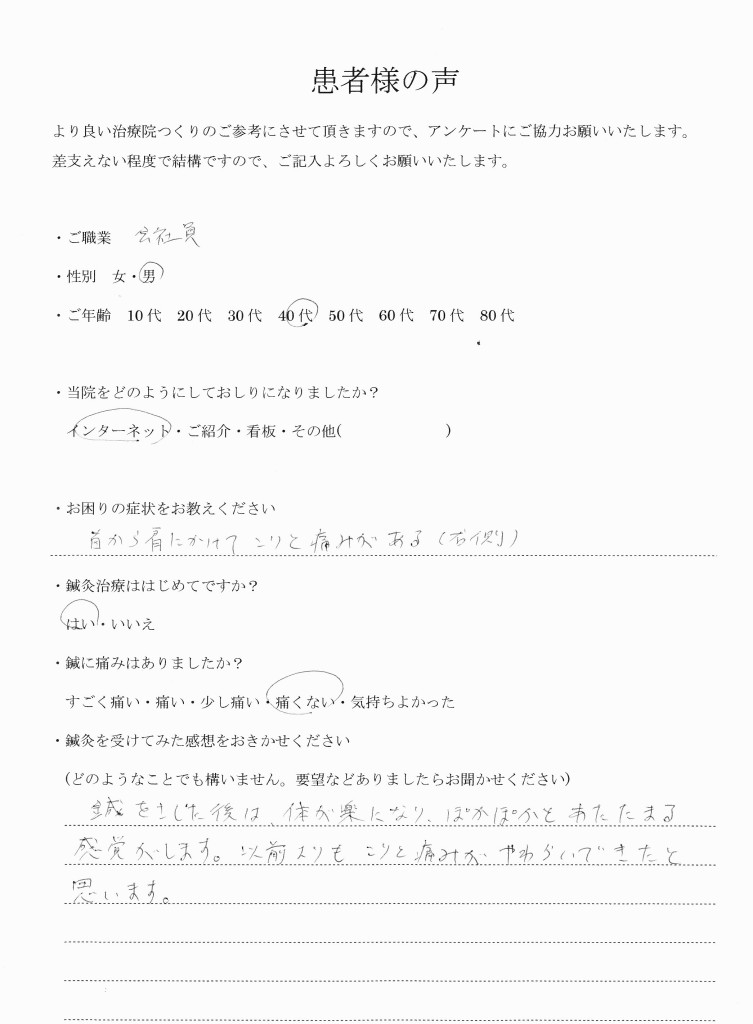 患者様の声
より良い治療院つくりのご参考にさせて頂きますので、アンケートにご協力お願いいたします。
差支えない程度で結構ですので、ご記入よろしくお願いいたします。
・ご職業 会社員
・性別 女・男
・ご年齢 10代 20代 30代 40代 50代 60代 70代 80代
・当院をどのようにしておしりになりましたか？
インターネット・ご紹介・看板・その他( )
・お困りの症状をお教えください
首から肩にかけてこりと痛みがある(右側)
・鍼灸治療ははじめてですか？
はい・いいえ
・鍼に痛みはありましたか？
すごく痛い・痛い・少し痛い・痛くない・気持ちよかった
・鍼灸を受けてみた感想をおきかせください
(どのようなことでも構いません。要望などありましたらお聞かせください)
鍼をさした後は、体が楽になり、ぽかぽかとあたたまる
感覚がします。以前よりもこりと痛みがやわらいできたと
思います。